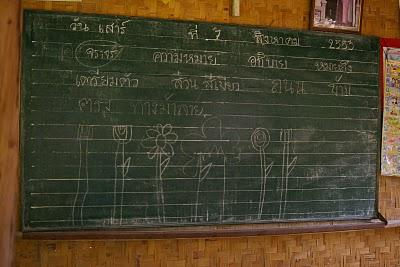 วัน เสาร์ ที่ 7 สิงหาคม 2553
จราจร ความหมาย อธิบาย หมายถึง
เตรียมตัว ส่วน สีเขียว ถนน ข้าม
ตรง ทางม้าลาย